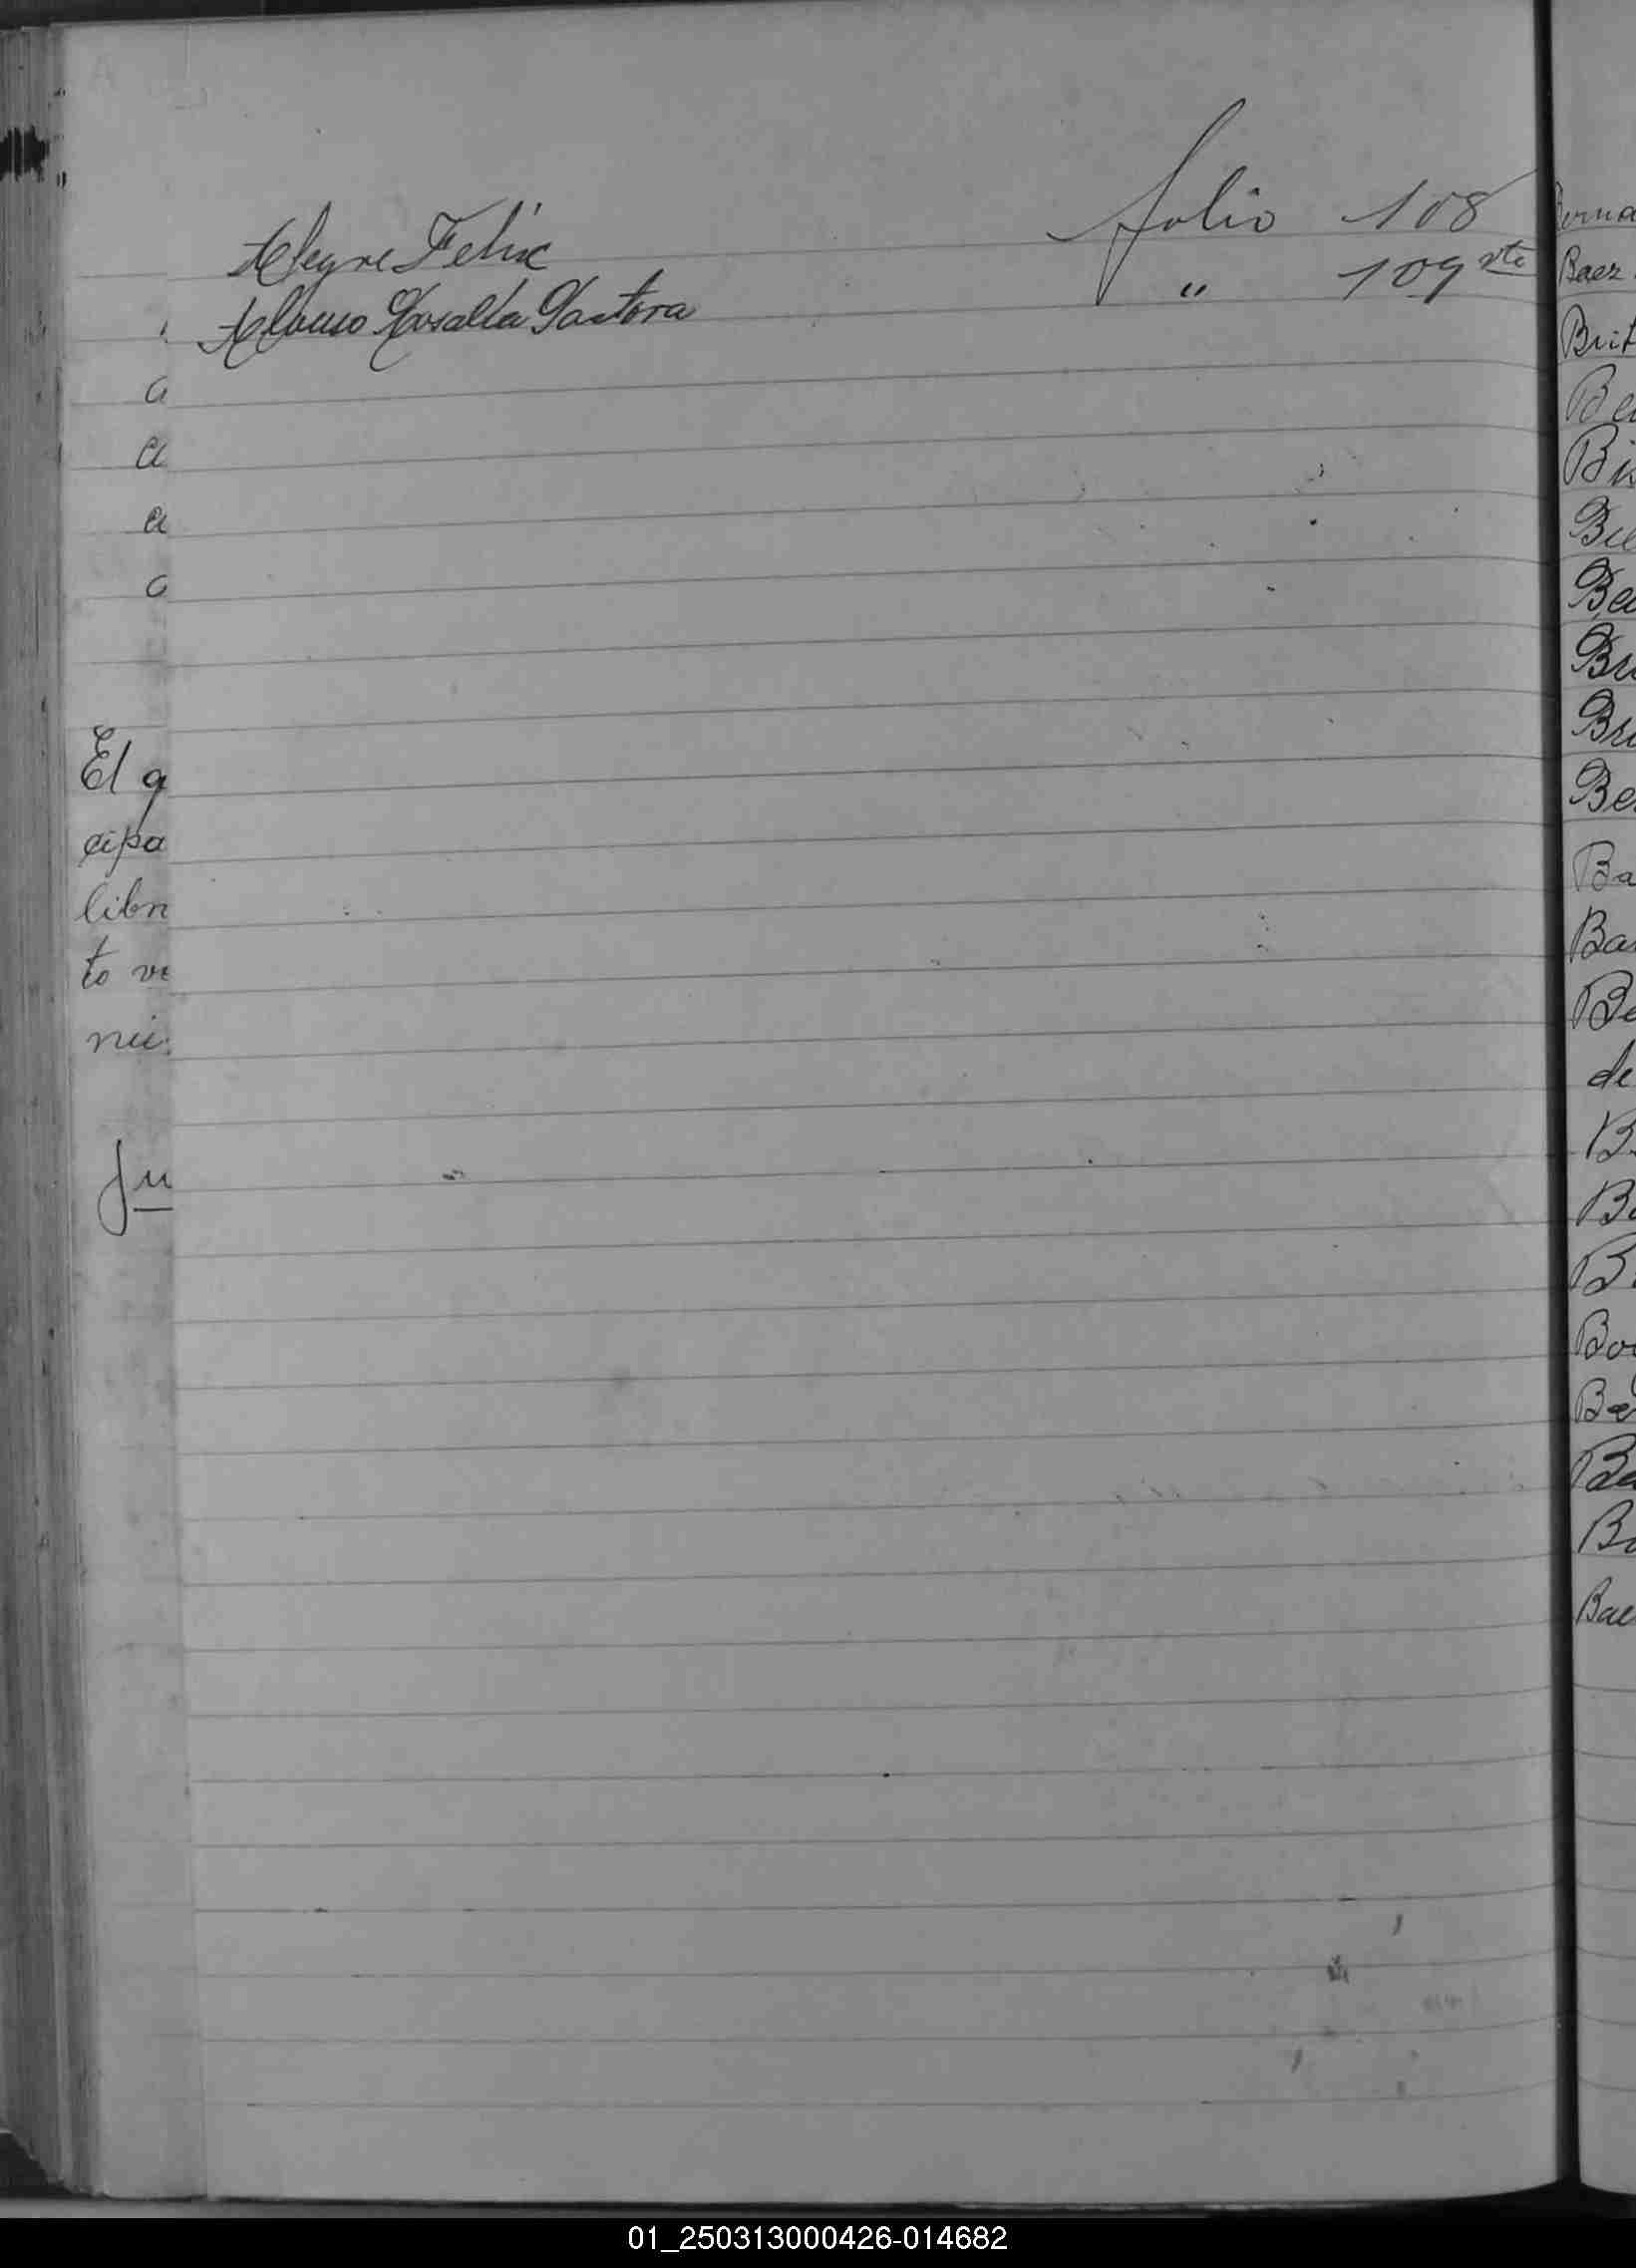 Alegre Felix folio 108
Alonso Rosalia Pastora " 109 vto
a
a
a
a
El q
cipa
libr
to ve
nú
Ju
Berna
Baez
Brit
Be
Bu
Be
Br
Bri
Be
Ba
Ba
Be
de
B
B
B
Bog
Ba
Ba
Bae
01_250313000426-014682